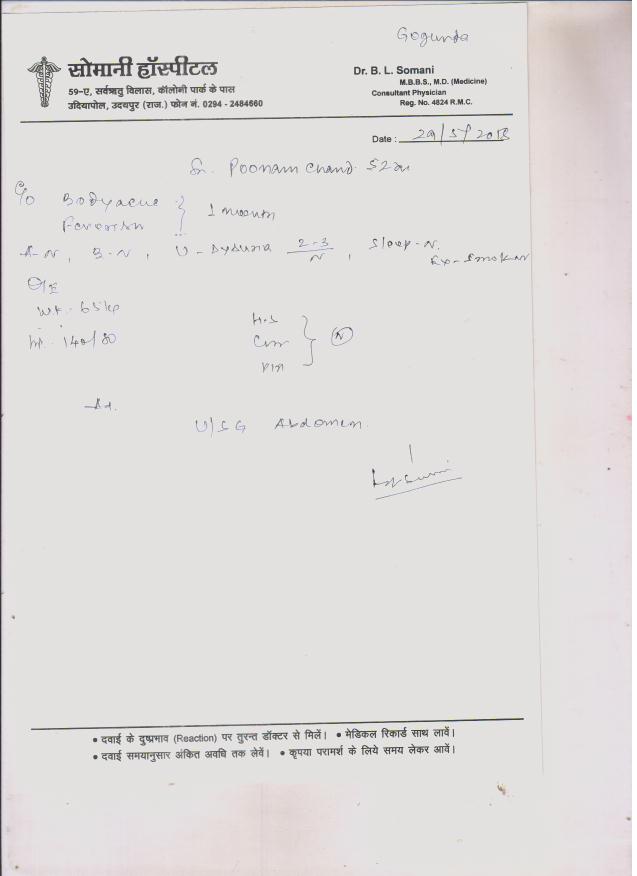 Gogunda
सोमानी हॉस्पीटल
59-ए, सर्वऋतु विलास, कॉलोनी पार्क के पास
उदियापोल, उदयपुर (राज.) फोन नं. 0294 - 2484660
Dr. B. L. Somani
M.B.B.S., M.D. (Medicine)
Consultant Physician
Reg. No. 4824 R.M.C.
Date : 29/5/2013
Poonam Chand 52
C/o Bodyache 1 month
A-N, B-N, U-Dysuria 2-3/N, Sleep-N.
Ex-Smoker
O/E
Wt. 65 kg
140/80
H.S
(N)
Ad.
U/SG Abdomen.
• दवाई के दुष्प्रभाव (Reaction) पर तुरन्त डॉक्टर से मिलें। • मेडिकल रिकार्ड साथ लावें।
• दवाई समयानुसार अंकित अवधि तक लेवें। • कृपया परामर्श के लिये समय लेकर आवें।